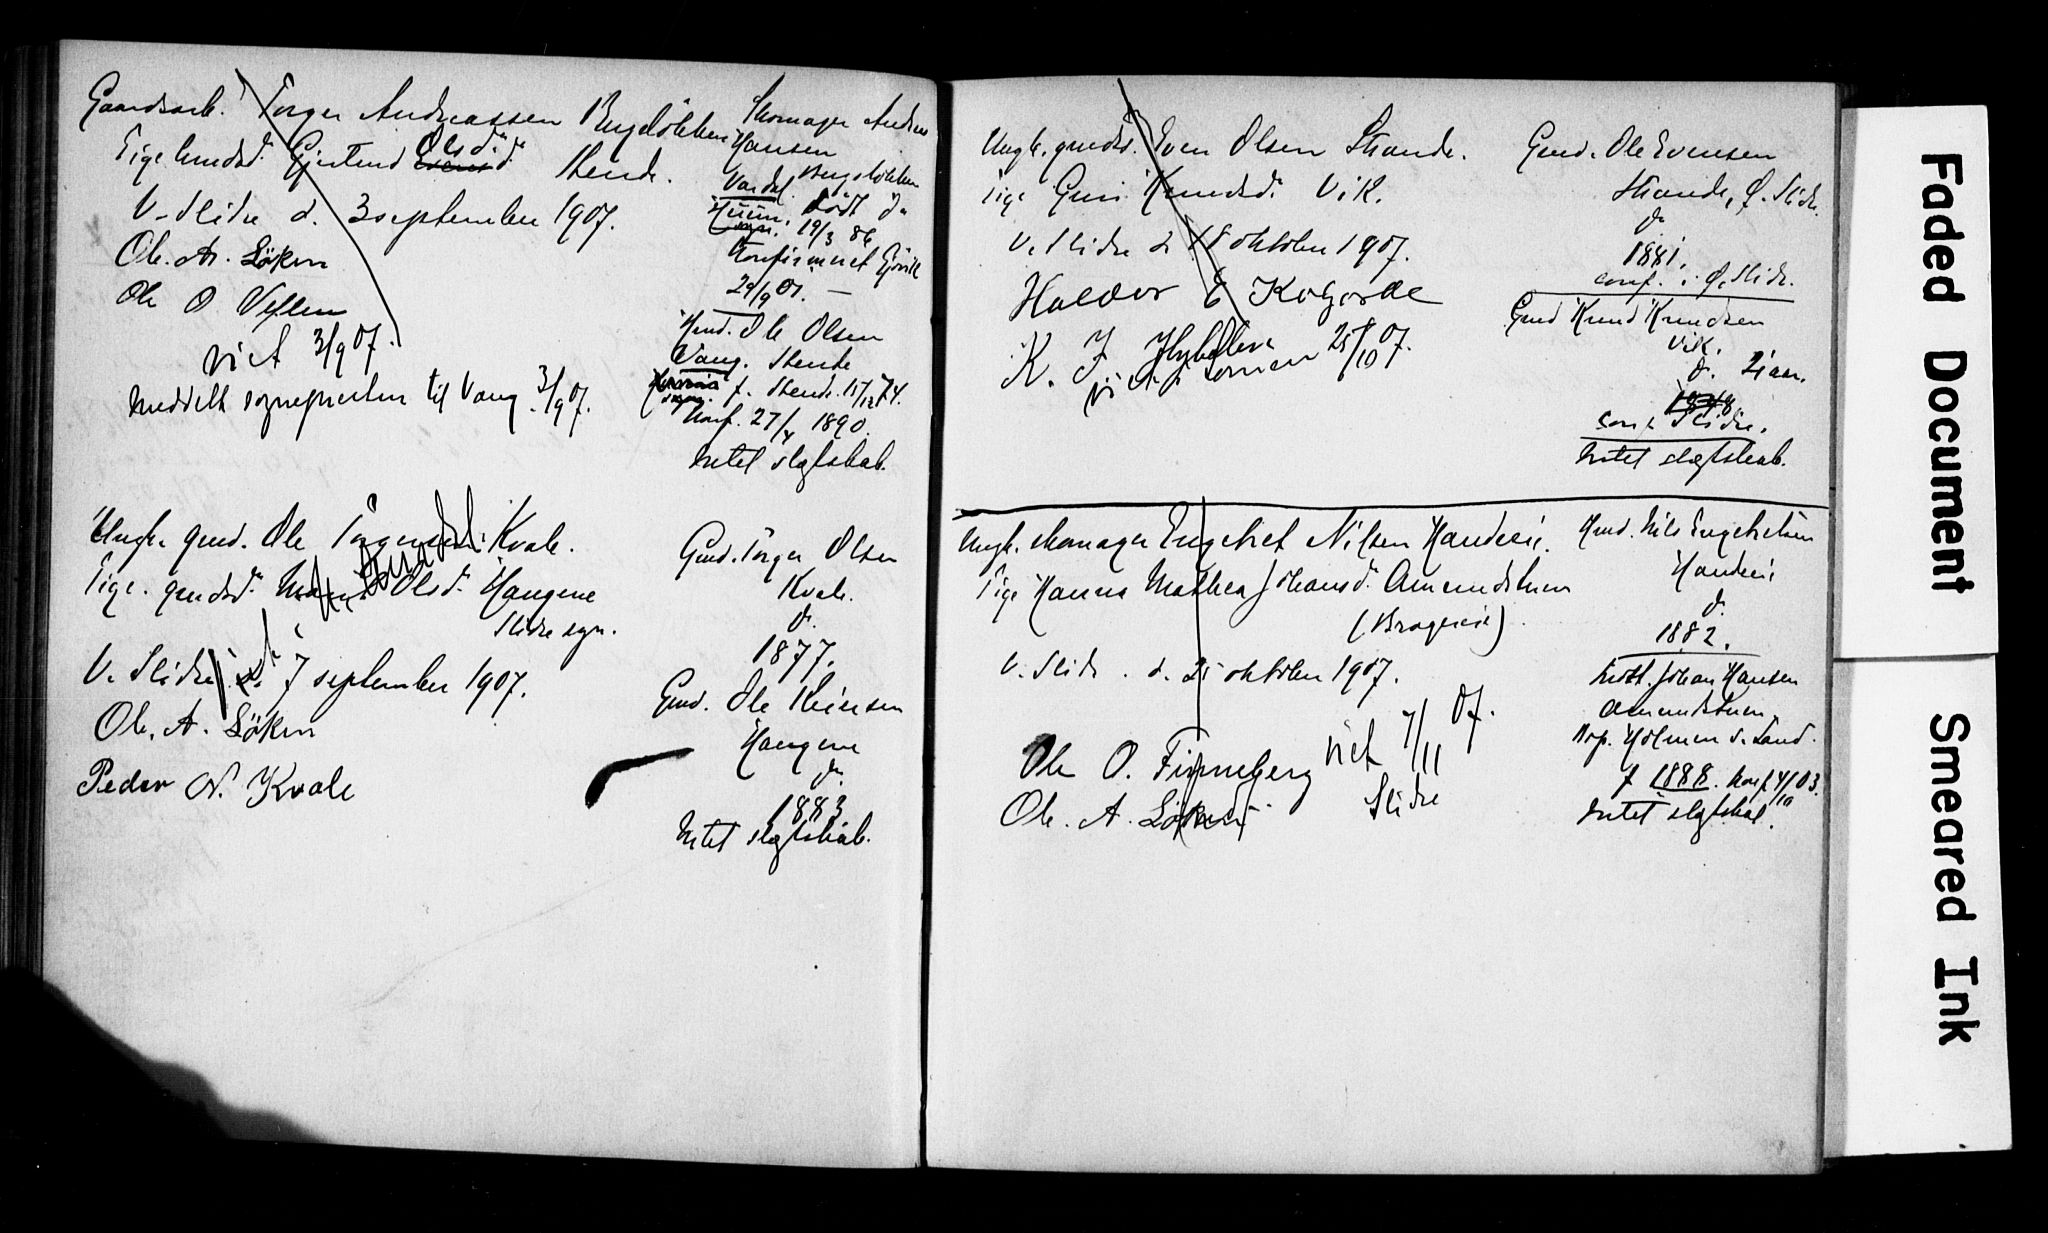 Gaardsarb. Torger Andreassen Bergeløkken
Pige husmdsd. Gjertrud Olsd. Stende.
V. Slidre d. 3 september 1907.
Ole. A. Løken
Ole O Veflen
viet 3/9 07.
meddelt sognepresten til Vang 3/9 07.
Skomager Andreas
Hansen
Bergeløkken
Vardal
født d.
19/3 86
Konfirmeret Gjøvik
29/9 01. —
Hmd. Ole Olsen
Vang. Stende
f. Stende. 15/12 74.
Konf. 27/4 1890.
Intet slegtskab.
Ungk. gmd. Ole Torgersen Kvale.
Pige. gmdsd. Olsd. Haugene
Slidre sgn.
V. Slidre d. 7 september 1907.
Ole. A. Løken
Peder N. Kvale
Gmd. Torger Olsen
Kvale.
d.
1877.
Gmd. Ole Reiersen
Haugene
d.
1883
Intet slegtskab.
Ungk. gmds. Even Olsen Strande.
Pige Guri Knudsd. Vik.
V. Slidre d. 18 oktober 1907.
Haldor E Kogorde
K. J. Hybðlien
viet i Lomen 25/10 07.
Gmd. Ole Evensen
Strande, Ø. Slidre.
d.
1881.
conf. i Ø. Slidre.
Gmd Knud Knudsen
Vik.
d.
conf. Slidre.
Intet slegtskab.
Ungk. skomager Engebret Nilsen Handeeie.
Pige Hanna Mathea Johansd. Amundstuen
(Brageeie)
V. Slidre. d. 25 oktober 1907.
viet 7/11 07.
Slidre
Ole O. Finneberg
Ole. A. Løken
Hmd. Nils Engebretsen
Handeeie
d.
1882.
Johan Hansen
Amundstuen
Holmen S. Land.
f 1888. konf 4/10 03.
Intet slegtskab.
Faded Document
Smeared Ink